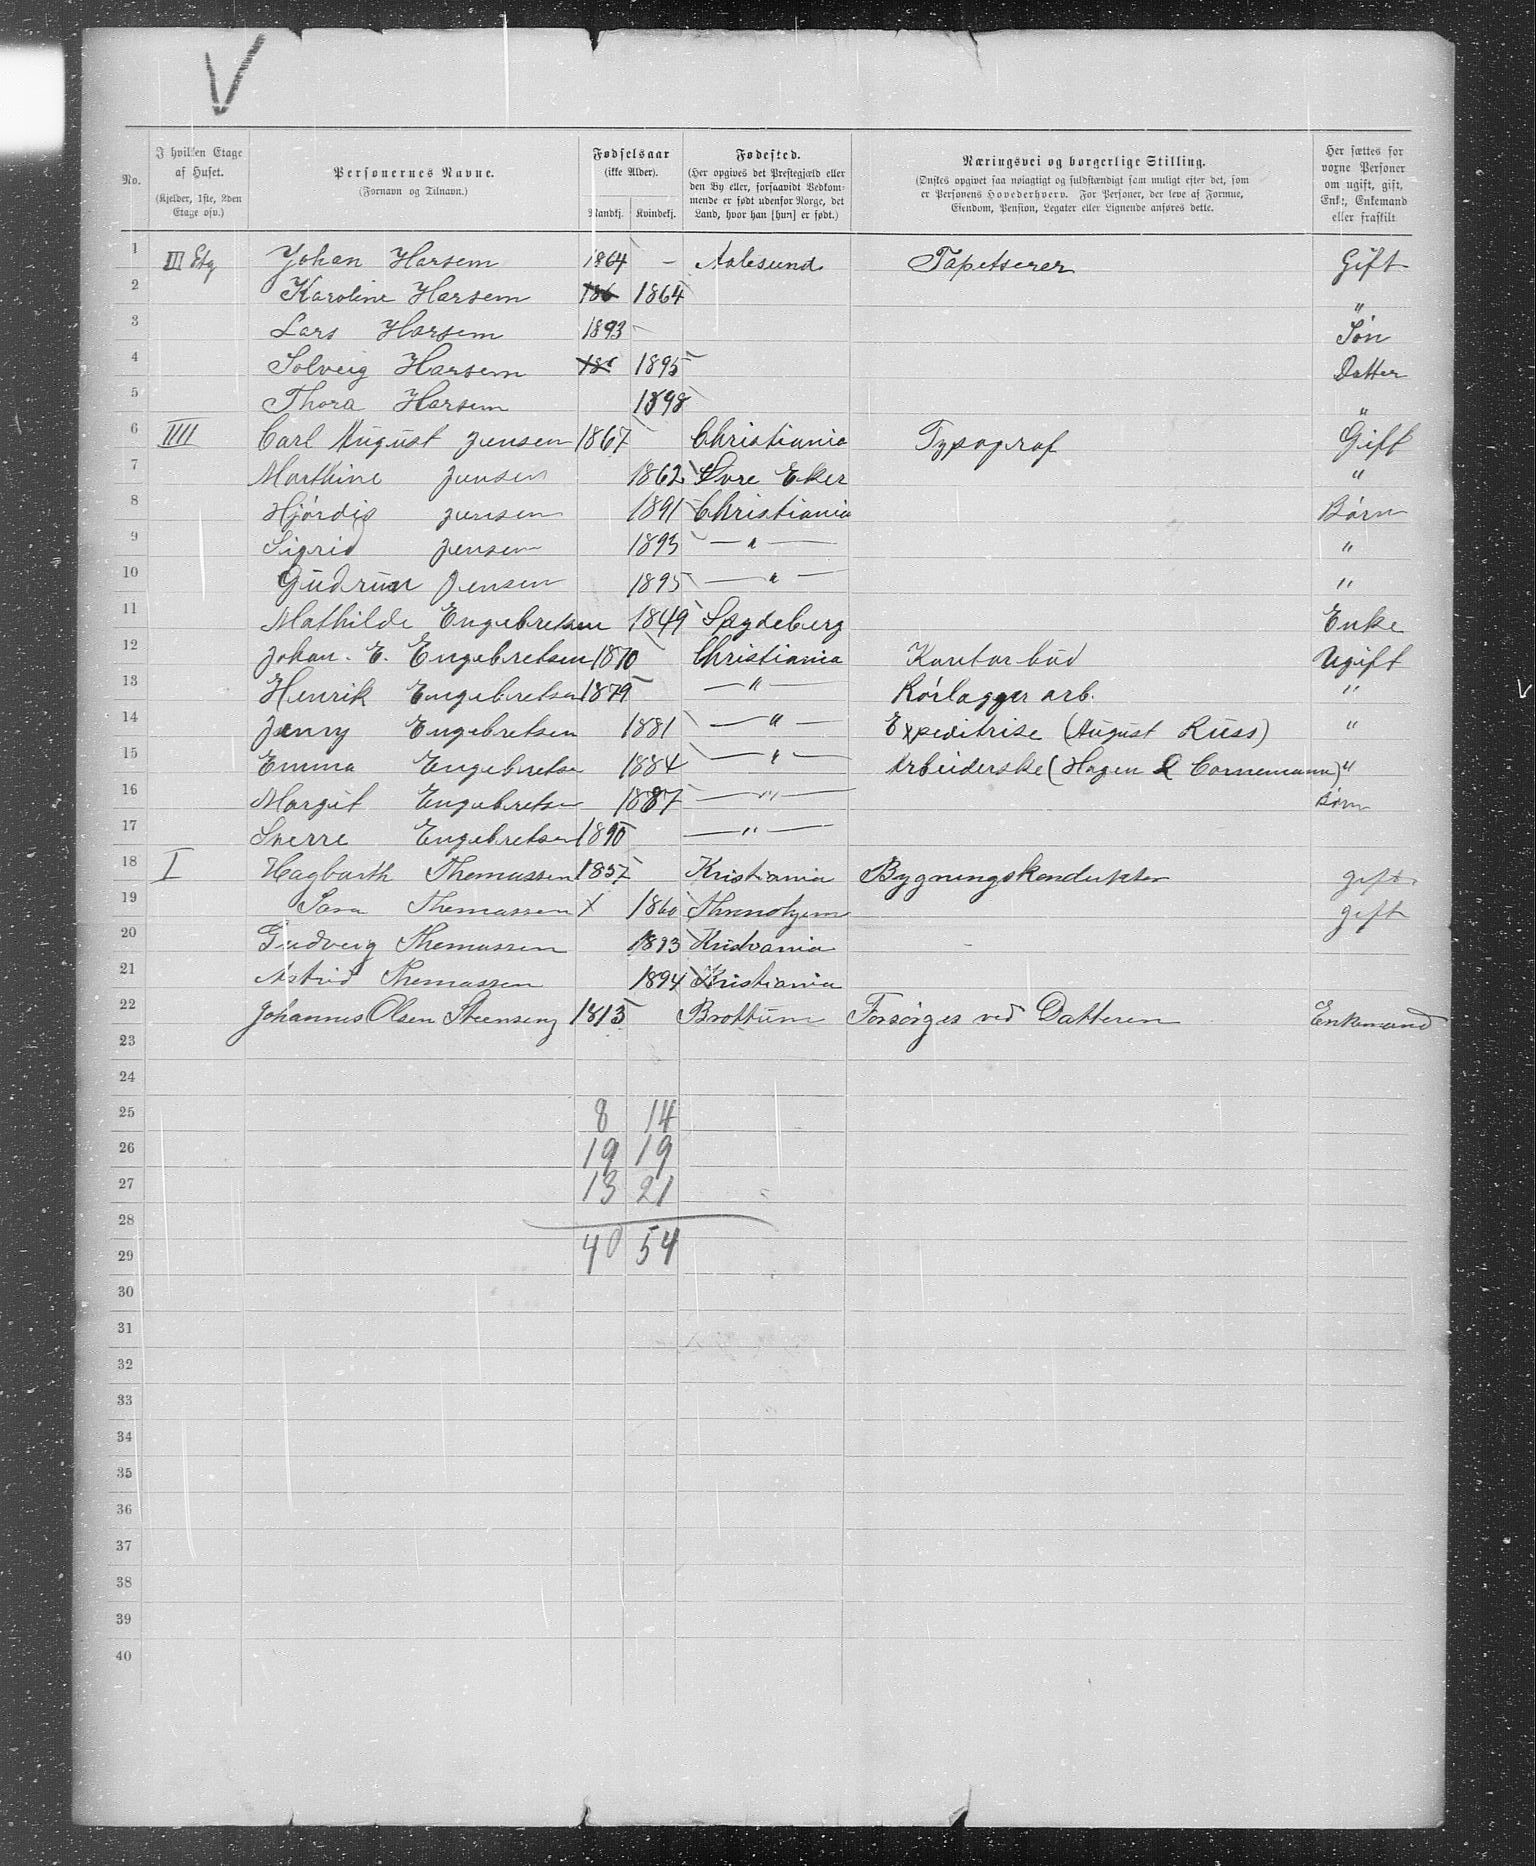 V
No. | I hvilken Etage af Huset. (Kjelder, 1ste, 2den Etage osv.) | Personernes Navne. (Fornavn og Tilnavn.) | Fødselsaar (ikke Alder). Mandkj. Kvindekj. | Fødested. (Her opgives det Prestegjæld eller den By eller, forsaavidt Vedkommende er født udenfor Norge, det Land, hvor han [hun] er født.) | Næringsvei og borgerlige Stilling. (Ønskes opgivet saa nøiagtigt og fuldstændigt som muligt efter det, som er Personens Hovederhverv. For Personer, der leve af Formue, Eiendom, Pension, Legater eller Lignende anføres dette. | Her sættes for voxne Personer om ugift, gift, Enke, Enkemand eller fraskilt
1 III Etg Johan Harsem 1864 – Aalesund Tapetserer Gift
2 Karoline Harsem 186 1864 "
3 Lars Harsem 1893 – Søn
4 Solveig Harsem 1895 Datter
5 Thora Harsem 1898 "
6 IIII Carl August Jensen 1867 Christiania Typograf Gift
7 Marthine Jensen 1862 Øvre Eker "
8 Hjørdis Jensen 1891 Christiania Børn
9 Sigrid Jensen 1893 — " — "
10 Gudrun Jensen 1895 — " — "
11 Mathilde Engebretsen 1849 Spydeberg Enke
12 Johan. E. Engebretsen 1870 Christiania Kontorbud Ugift
13 Henrik Engebretsen 1879 — " — Rørlægger arb. "
14 Jenny Engebretsen 1881 — " — Expeditrise (August Russ) "
15 Emma Engebretse 1884 — " — Arbeiderske (Hagen & Cornemann) "
16 Margit Engebretse 1887 — " — Børn
17 Sverre Engebretsen 1890 — " —
18 I Hagbarth Thomassen 1857 Kristiania Bygningskonduktør gift
19 Sara Thomassen X 1860 Throndhjem gift
20 Gudveig Thomassen 1893 Kristiania
21 Astrid Thomassen 1894 Kristiania
22 Johannes Olsen Steenseng 1813 Brøttum Forsørges ved Datteren Enkemand
23
24
25 8 14
26 19 19
27 13 21
28
29 40 54
30
31
32
33
34
35
36
37
38
39
40